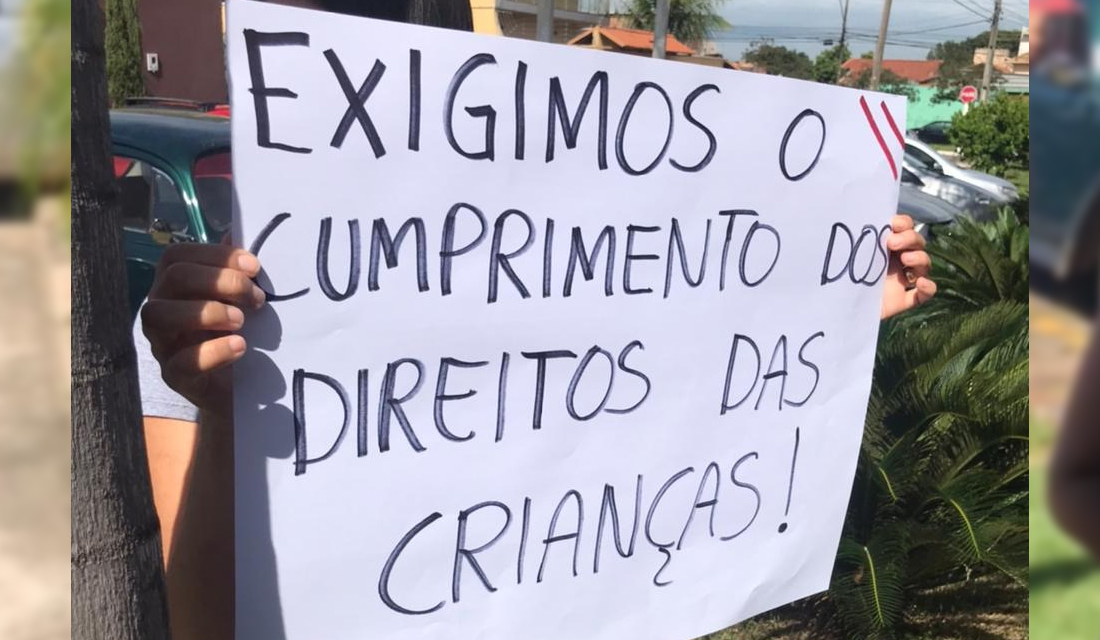 EXIGIMOS O
CUMPRIMENTO DOS
DIREITOS DAS
CRIANÇAS!